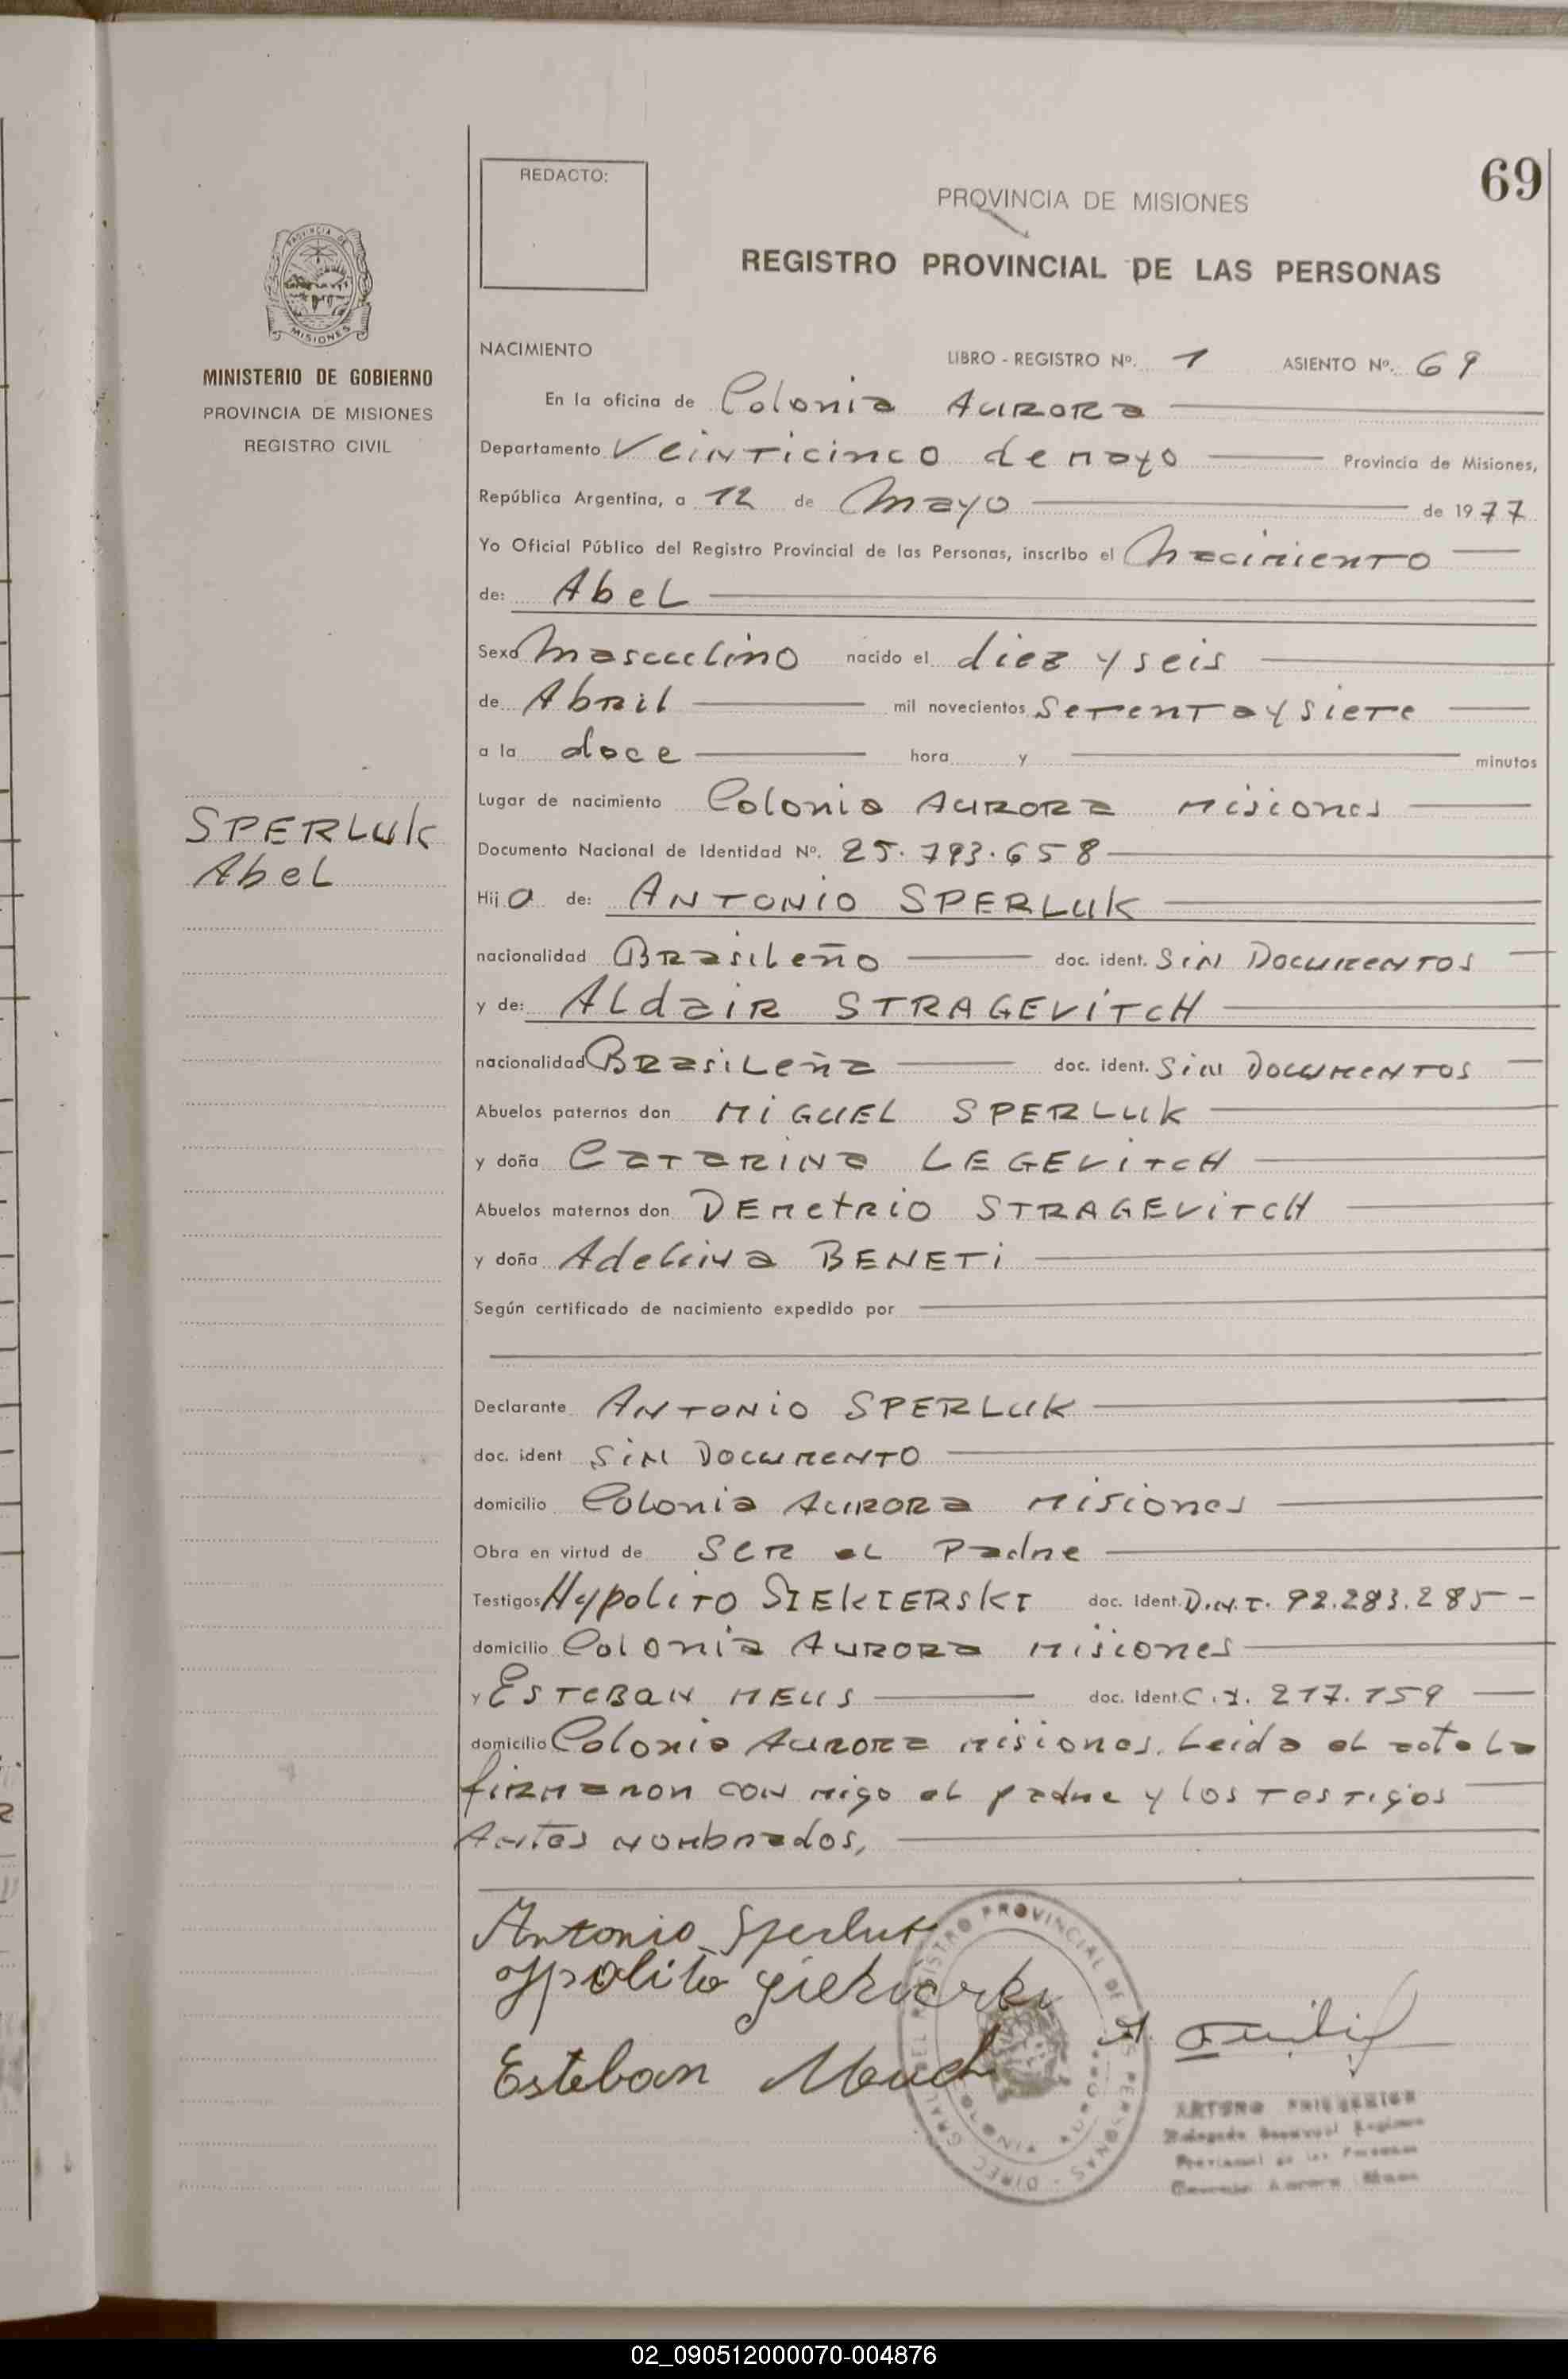 69
REDACTO:
PROVINCIA DE MISIONES
REGISTRO PROVINCIAL DE LAS PERSONAS
PROVINCIA DE
MISIONES
MINISTERIO DE GOBIERNO
PROVINCIA DE MISIONES
REGISTRO CIVIL
NACIMIENTO LIBRO - REGISTRO Nº. 1 ASIENTO Nº. 69
En la oficina de Colonia Aurora
Departamento Veinticinco de mayo Provincia de Misiones,
República Argentina, a 12 de Mayo de 1977
Yo Oficial Público del Registro Provincial de las Personas, inscribo el Nacimiento
de: Abel
Sexo Masculino nacido el diez y seis
de Abril mil novecientos setenta y siete
a la doce hora y minutos
Lugar de nacimiento Colonia Aurora Misiones
SPERLUK
Abel
Documento Nacional de Identidad Nº. 25.793.658
Hij o de: ANTONIO SPERLUK
nacionalidad Brasileño doc. ident. Sin Documentos
y de: Aldair STRAGEVITCH
nacionalidad Brasileña doc. ident. Sin Documentos
Abuelos paternos don MIGUEL SPERLUK
y doña Catarina LEGEVITCH
Abuelos maternos don Demetrio STRAGEVITCH
y doña Adelina BENETI
Según certificado de nacimiento expedido por
Declarante ANTONIO SPERLUK
doc. ident Sin Documento
domicilio Colonia Aurora Misiones
Obra en virtud de ser el Padre
Testigos Hypolito SIEKIERSKI doc. Ident. D.N.I. 92.283.285-
domicilio Colonia Aurora Misiones
y Esteban MEUS doc. Ident. C.I. 217.159
domicilio Colonia Aurora Misiones. Leida el acta la
firmaron con migo el padre y los testigos
Antes nombrados,
Antonio Sperluk
Esteban
REGISTRO PROVINCIAL DE LAS PERSONAS - DIREC. GRAL. DEL
02_090512000070-004876